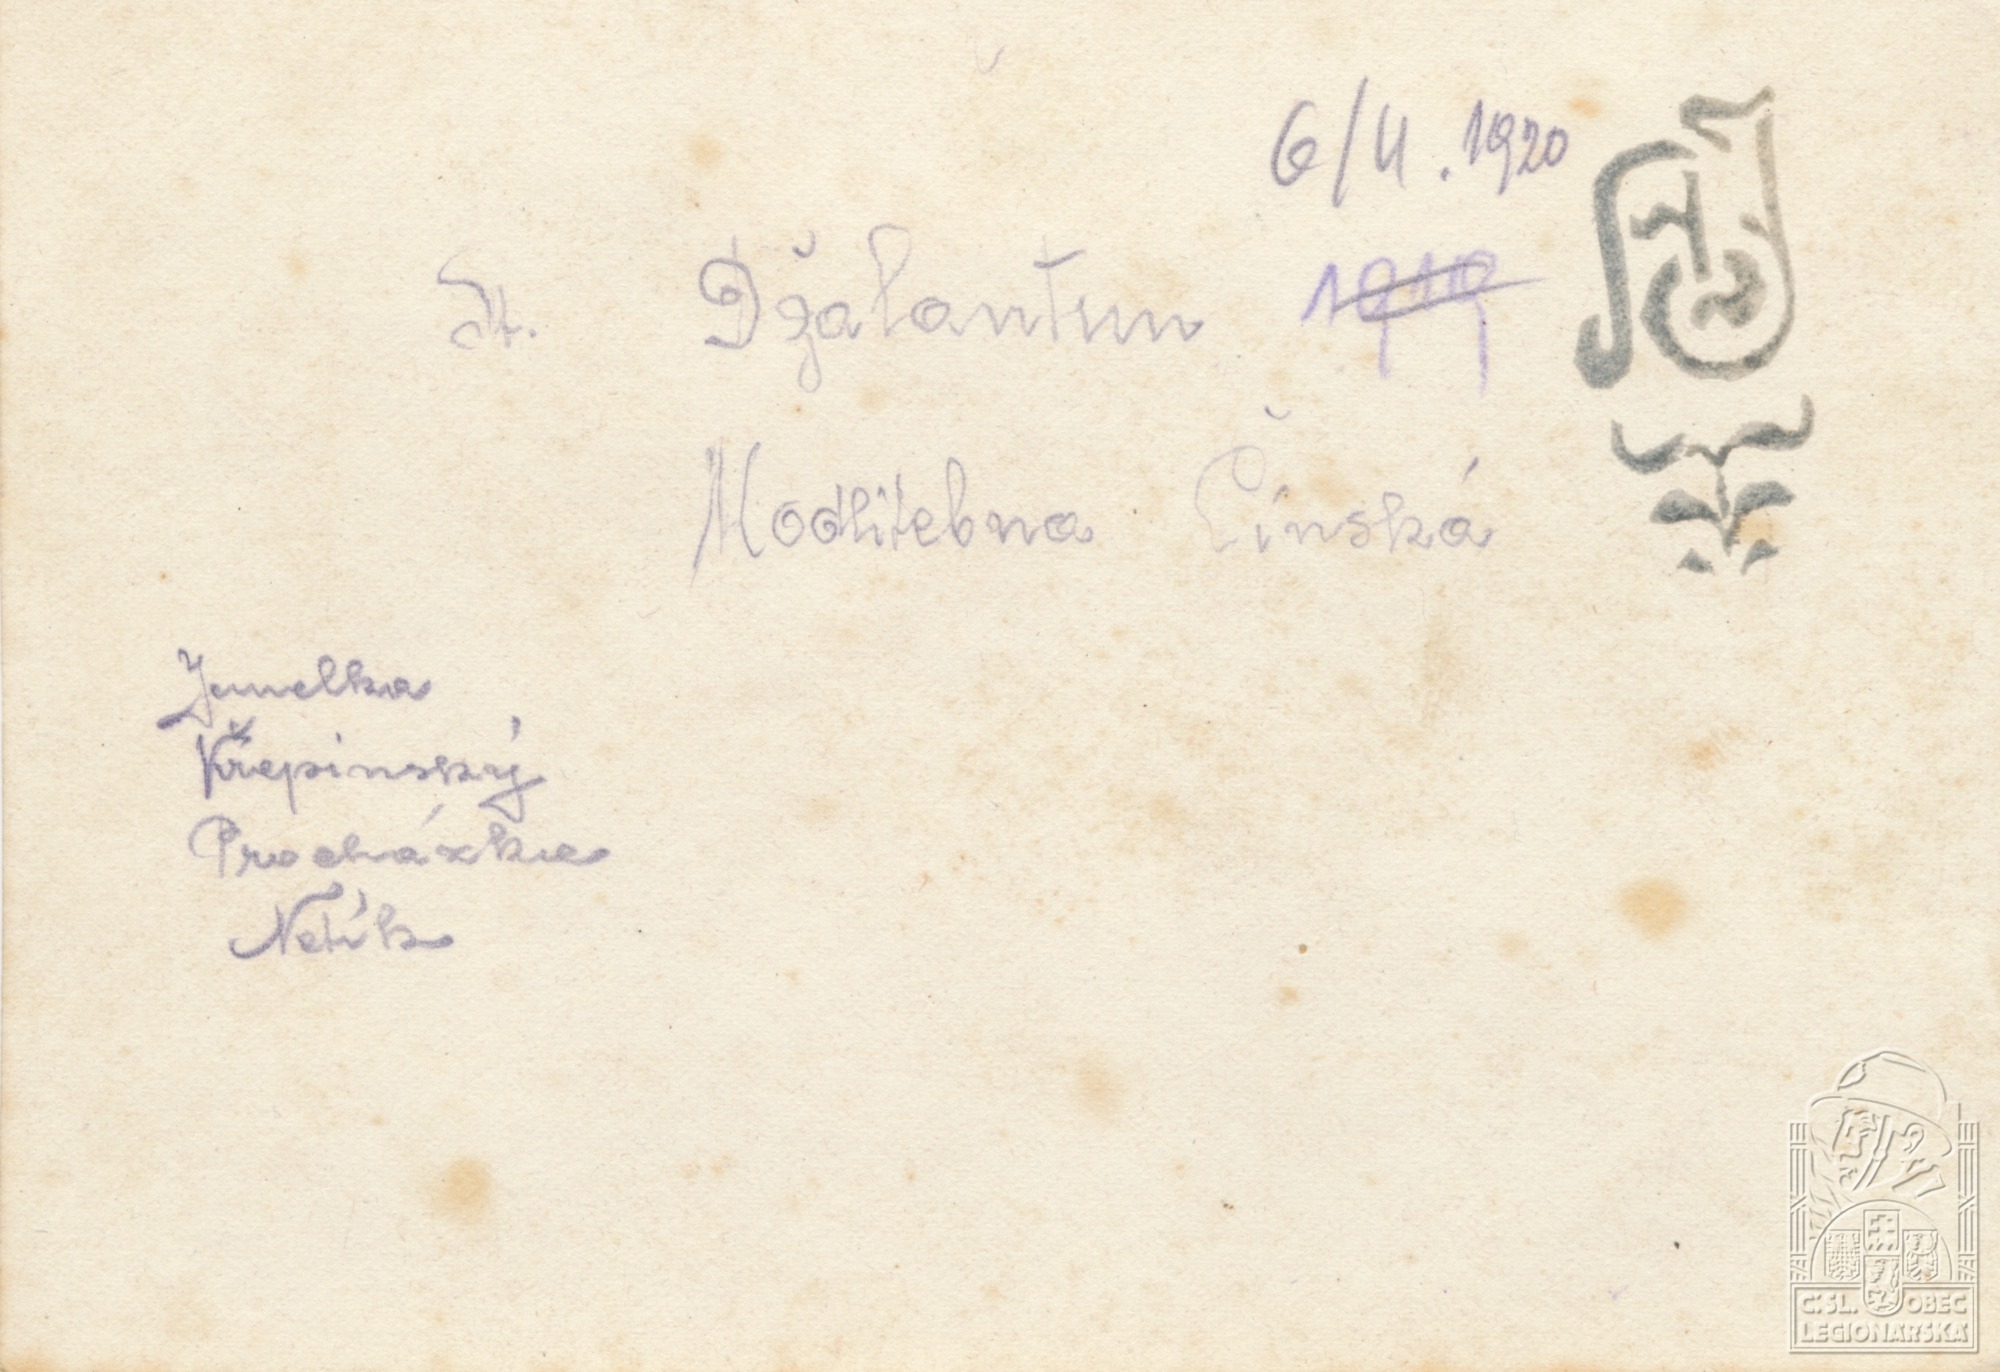 6/4. 1920
St. Džalantun 1919
Modlitebna Čínská
Křepinský
Procházka
Netík
Č.SL. OBEC
LEGIONÁŘSKÁ